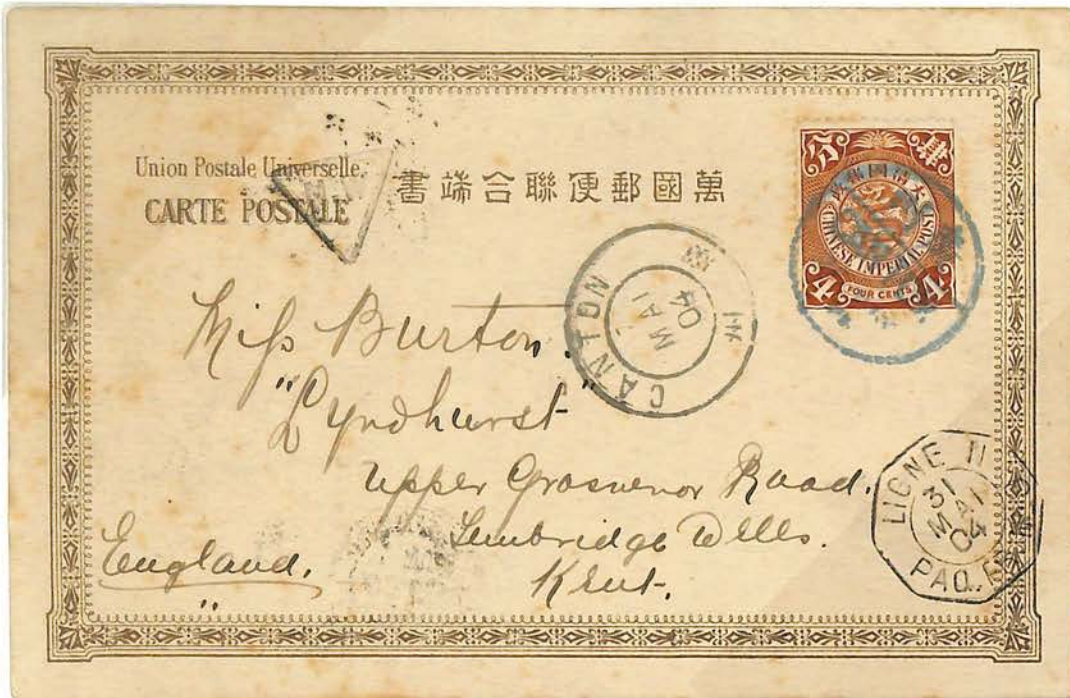 Union Postale Universelle.
CARTE POSTALE
書端合聯便郵國萬
CHINESE IMPERIAL POST
4 FOUR CENTS 4
CANTON
MAI
04
Miss Burton.
"Lyndhurst"
Upper Grosvenor Road.
Tunbridge Wells.
Kent.
England.
LIGNE
31
MAI
04
PAQ. FR.